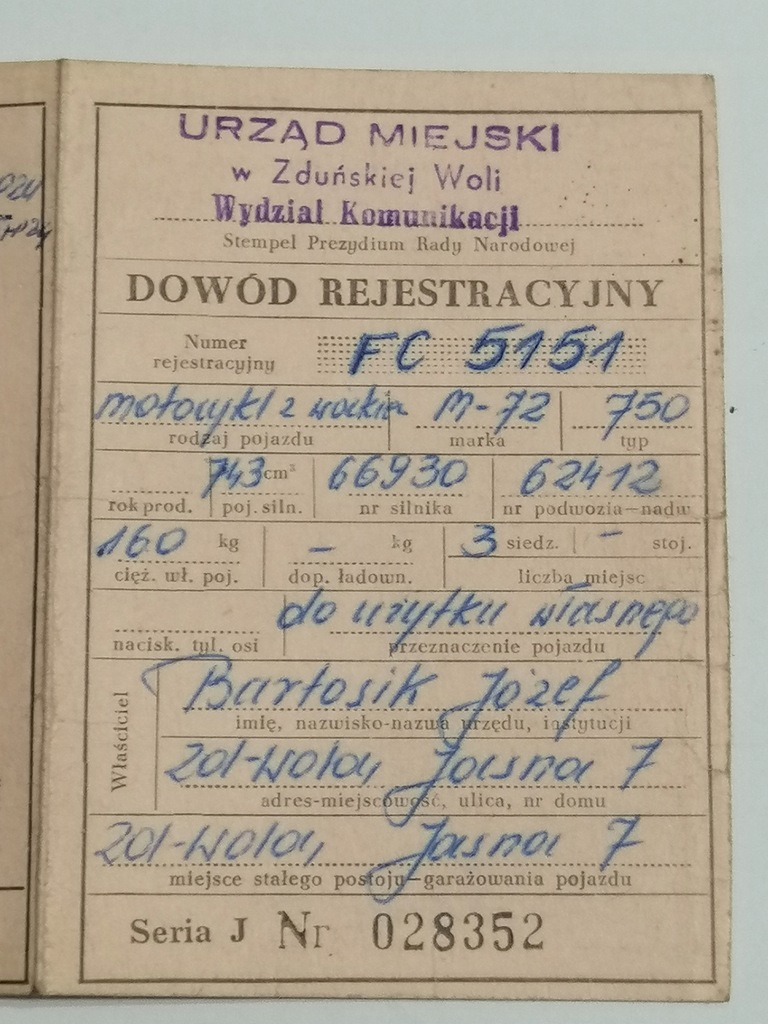 URZĄD MIEJSKI
w Zduńskiej Woli
Wydział Komunikacji
Stempel Prezydium Rady Narodowej
DOWÓD REJESTRACYJNY
Numer rejestracyjny FC 5151
motocykl z wózkiem M-72 750
rodzaj pojazdu marka typ
743 cm³ 66930 62412
rok prod. poj. siln. nr silnika nr podwozia—nadw
160 kg – kg 3 siedz. – stoj.
cięż. wł. poj. dop. ładown. liczba miejsc
do użytku własnego
nacisk. tyl. osi przeznaczenie pojazdu
Właściciel
Bartosik Józef
imię, nazwisko-nazwa urzędu, instytucji
Zd-Wola, Jasna 7
adres-miejscowość, ulica, nr domu
Zd-Wola, Jasna 7
miejsce stałego postoju—garażowania pojazdu
Seria J Nr 028352